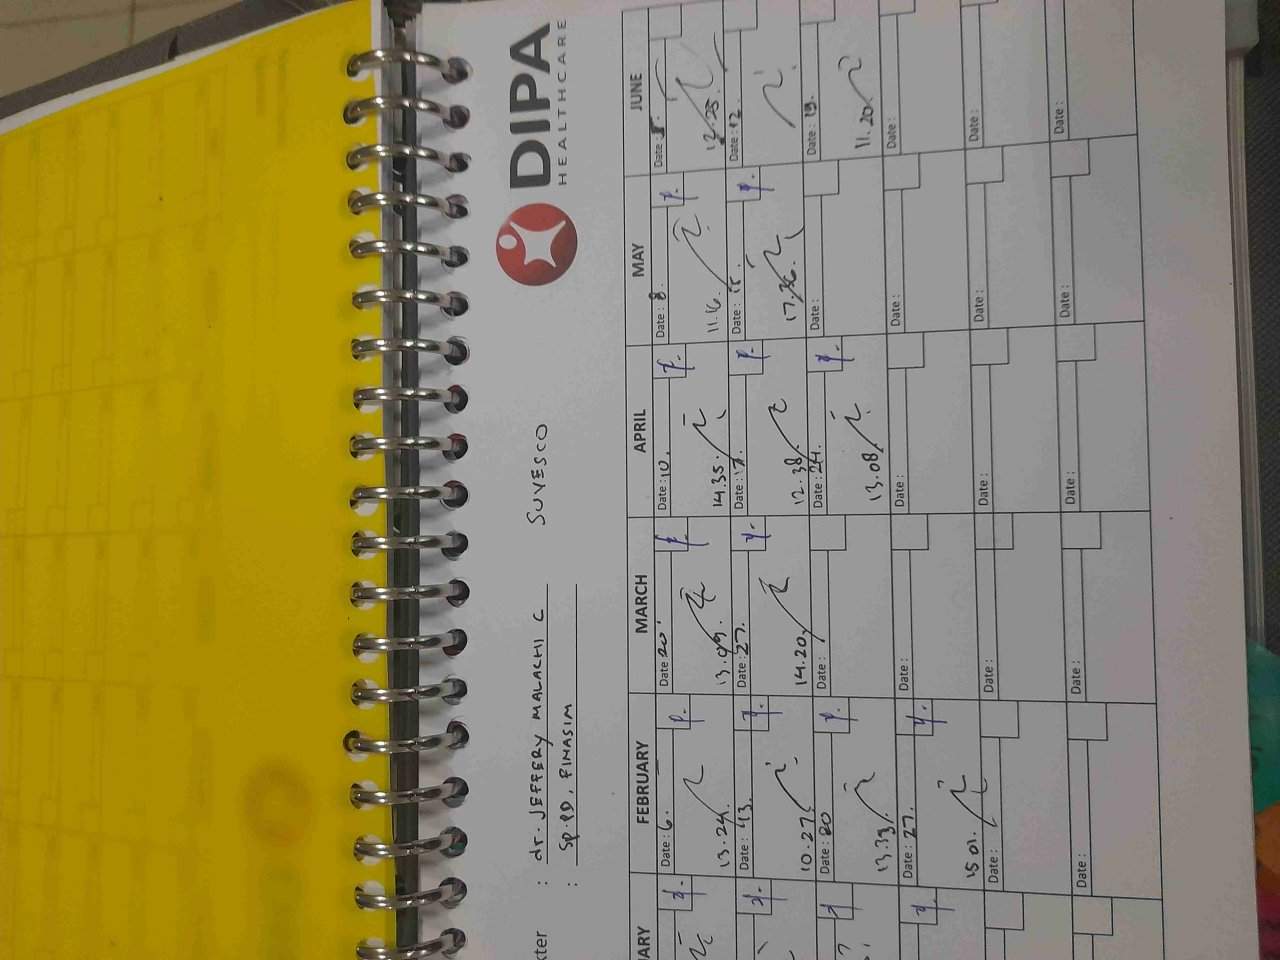 DIPA
HEALTHCARE
kter : dr. JEFFERY MALACHI C SUYESCO
: SP.PD, FINASIM
ARY FEBRUARY MARCH APRIL MAY JUNE
Date: 6. Date: 20 Date: 10. Date: 8. Date:
13.24. 13.09. 14.35 11.16. 12.25.
Date: 13. Date: 27. Date: 17. Date: 15. Date: 12.
10.27. 14.20. 12.38 17.36.
Date: 20 Date: Date: 24. Date: Date: 19.
13.33. 13.08. 11.20.
Date: 27. Date: Date: Date: Date:
15 01.
Date: Date: Date: Date: Date:
Date: Date: Date: Date: Date: